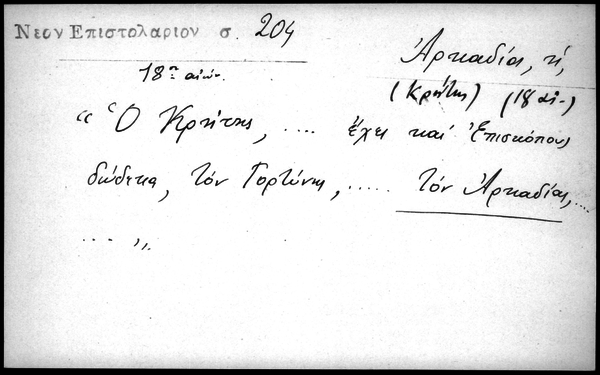 Νεον Επιστολαριον σ. 204
Ἀρκαδία, ἡ,
18ης αἰών.
(Κρήτης) (18 αἰ.)
"Ὁ Κρήτης, .... ἔχει καί Ἐπισκόπους
δώδεκα, τόν Γορτύνης, ..... τόν Ἀρκαδίας, ....
.... "